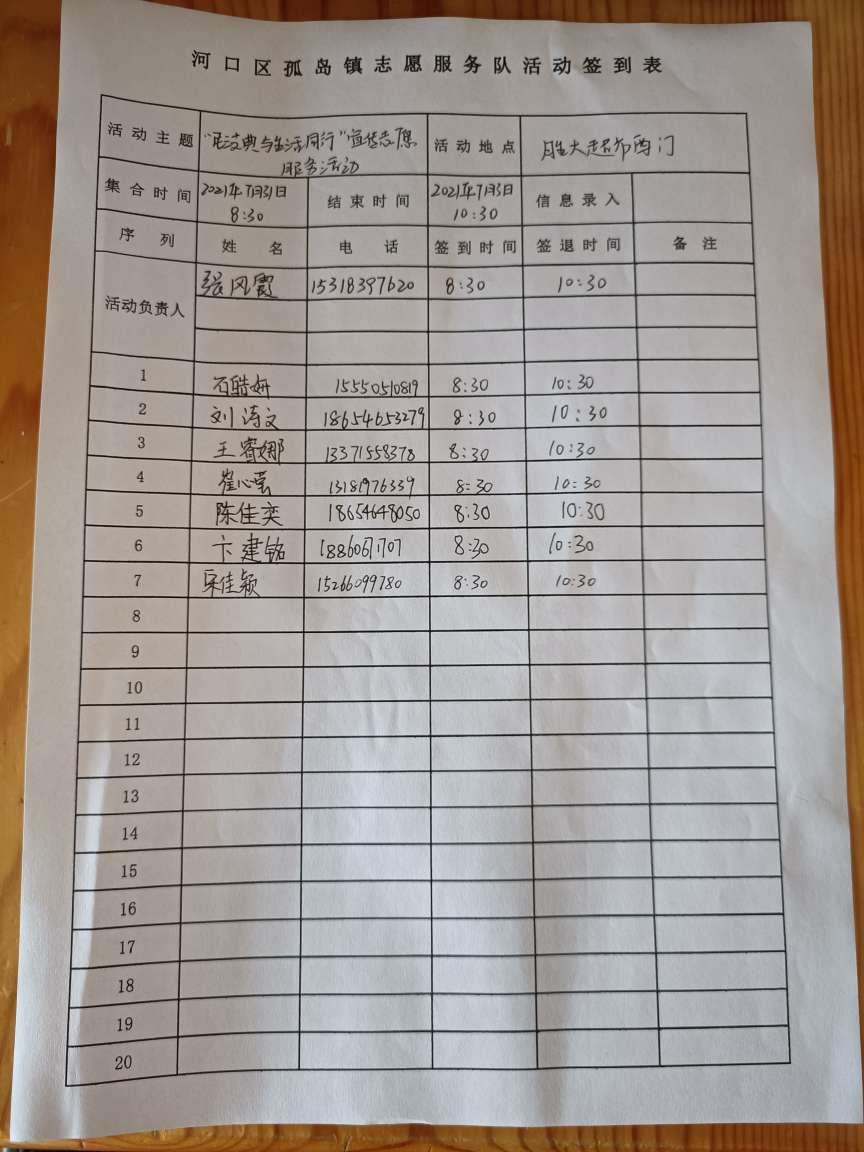 河口区孤岛镇志愿服务队活动签到表
活动主题 “民法典与生活同行”宣传志愿 活动地点 胜大超市西门
服务活动
集合时间 2021年7月31日 结束时间 2021年7月31日 信息录入
8:30 10:30
序列 姓名 电话 签到时间 签退时间 备注
活动负责人 张风霞 15318397620 8:30 10:30
1 石皓妍 15550510819 8:30 10:30
2 刘涛文 18654653279 8:30 10:30
3 王睿娜 13371558378 8:30 10:30
4 崔心莹 13181976339 8:30 10:30
5 陈佳奕 18654648050 8:30 10:30
6 卞建铭 18860671707 8:30 10:30
7 宋佳颖 15266099780 8:30 10:30
8
9
10
11
12
13
14
15
16
17
18
19
20